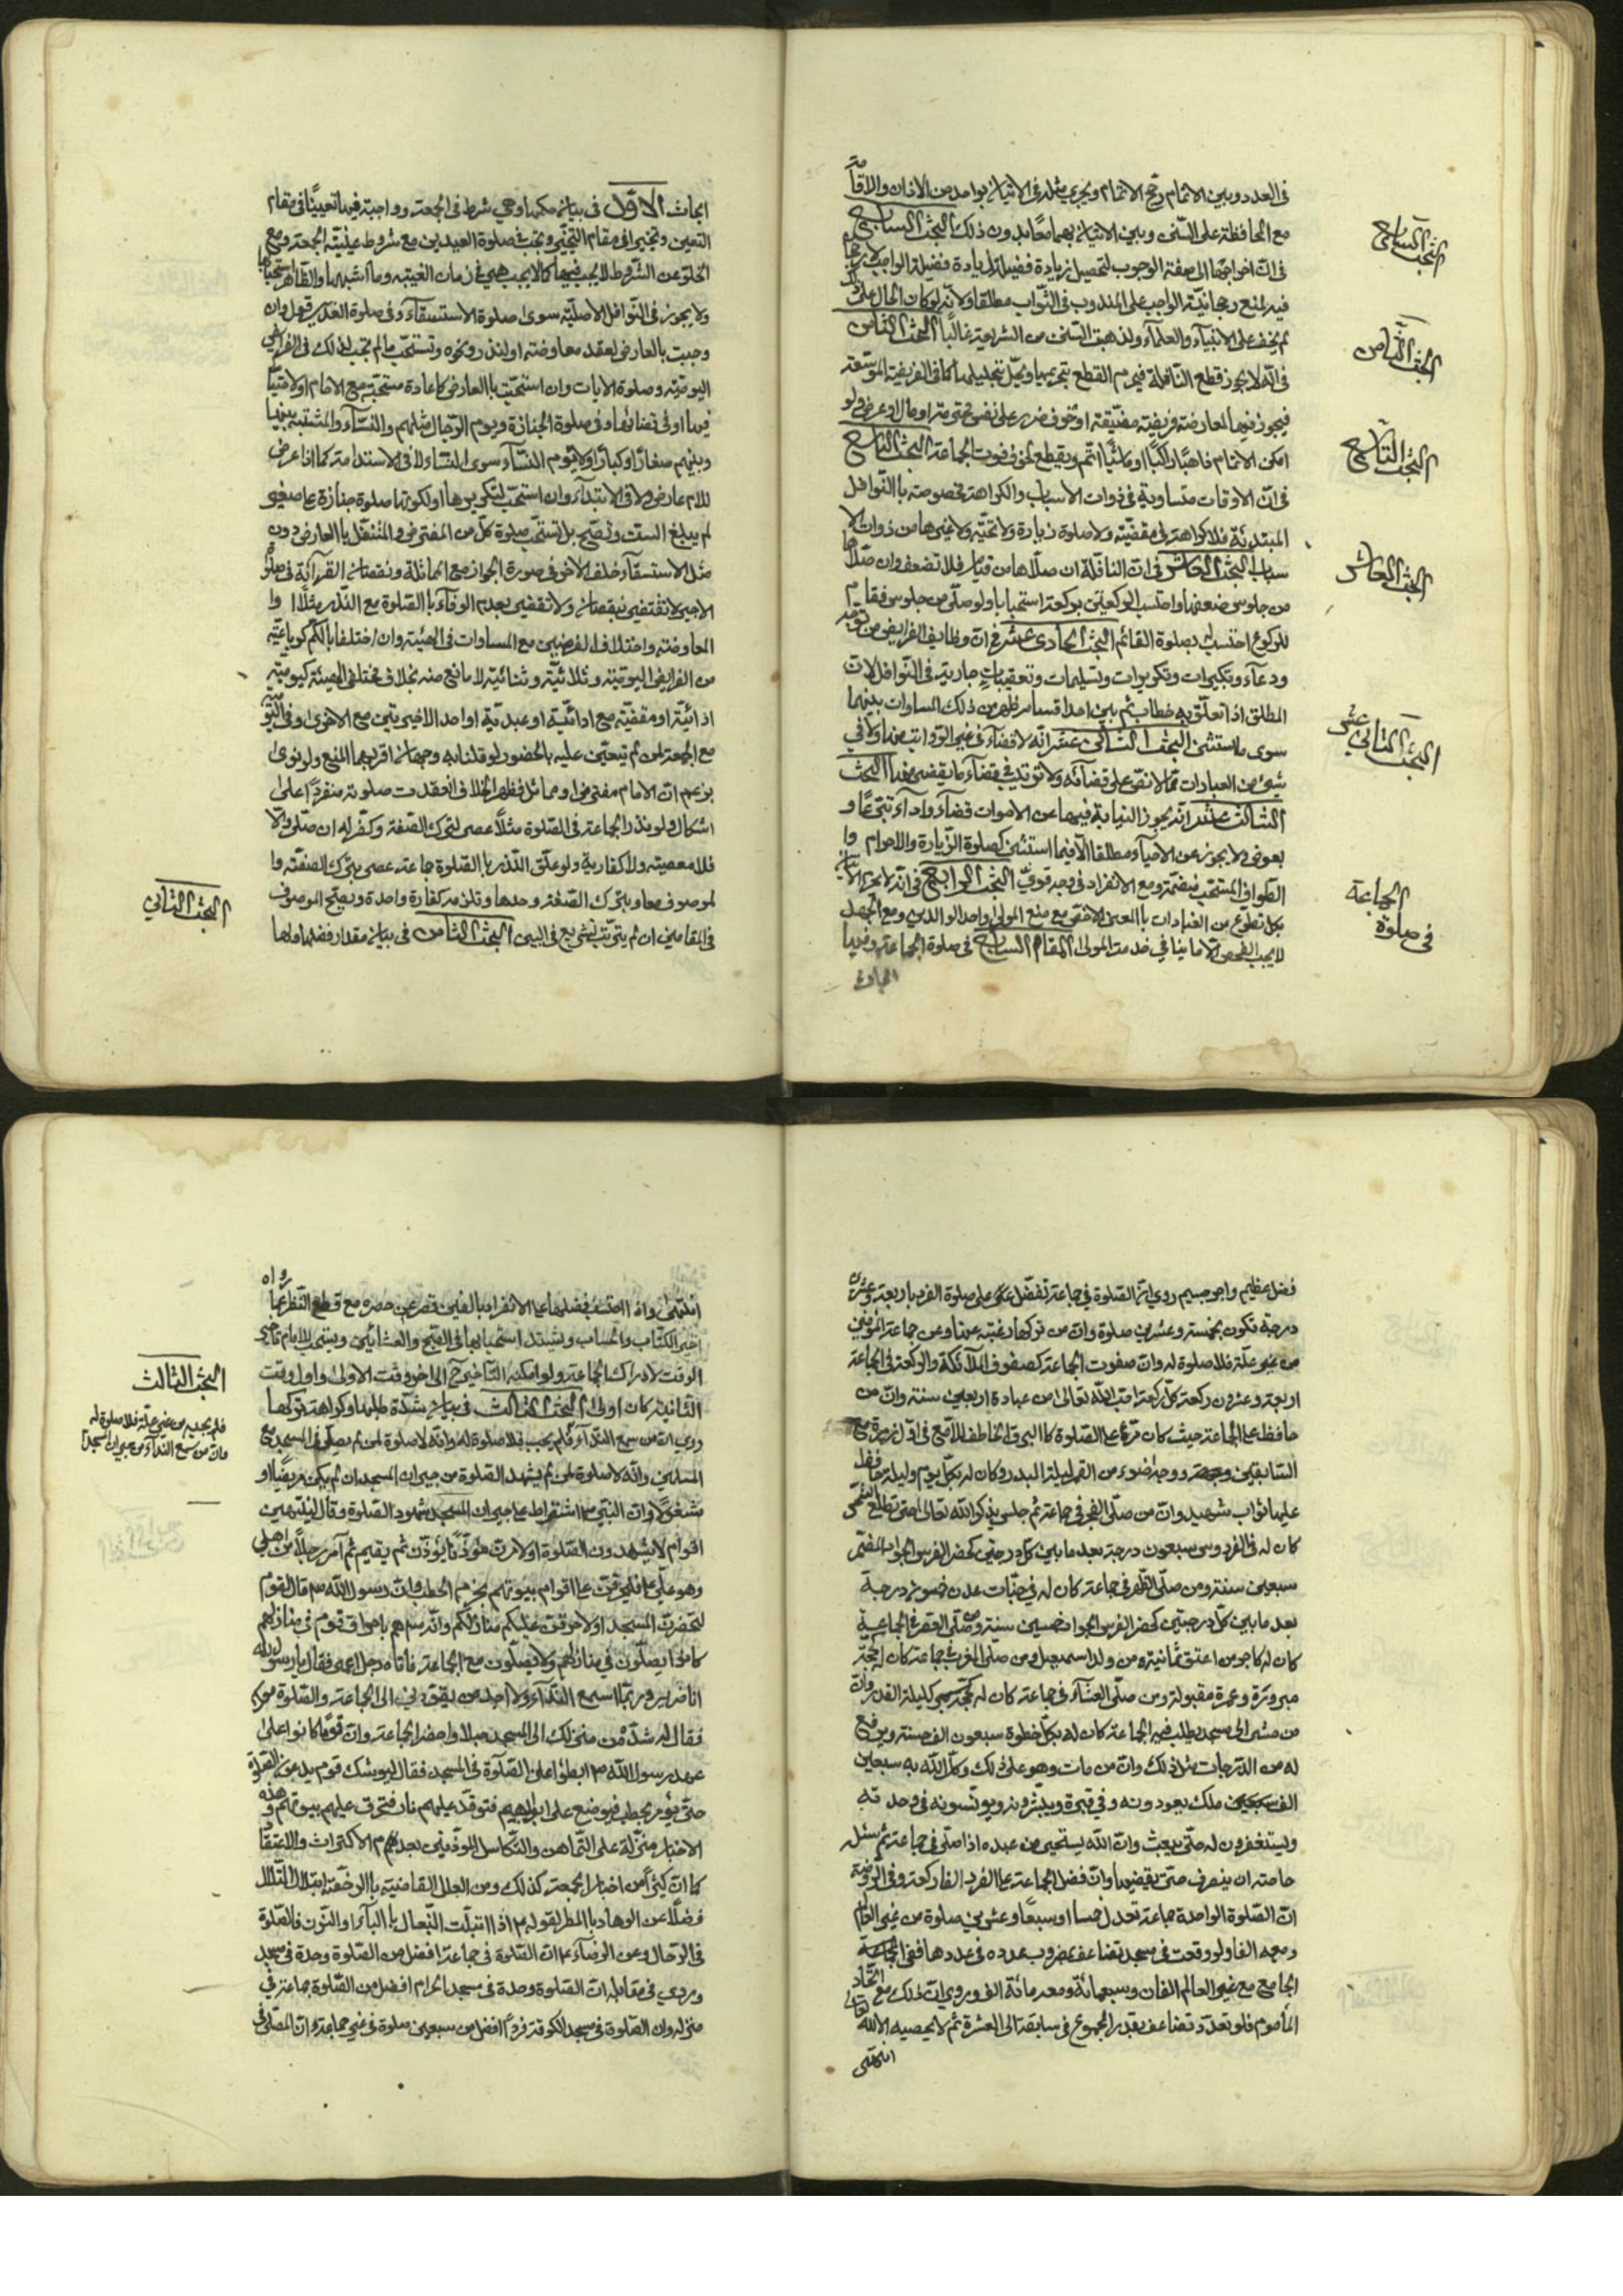 في العدد وبين الاتمام رجح الاتمام ويجري مثله في الاتيان بواحد من الاذان والاقامة
مع المحافظة على السنن وبين الاتيان بهما معا بدون ذلك البحث السابع
البحث السابع
في ان اخراجها الى صفة الوجوب لتحصيل زيادة فضيلة لزيادة فضيلة الواجب لا رجحان
فيه لمنع رجحانية الواجب على المندوب في الثواب مطلقا ولانه لو كان الحال على ذلك
لم يخف على الانبياء والعلماء ولذهبت السنن من الشريعة غالبا البحث الثامن
البحث الثامن
في انه لا يجوز قطع النافلة فيحرم القطع بتحريمها ويحل بتحليلها كما في الفريضة الموسعة
فيجوز فيها لمعارضة فريضة مضيقة او خوف ضرر على نفس محترمة او مال او عرض ولو
امكن الاتمام ذاهبا راكبا او ماشيا اتم ويقطع لخوف فوت الجماعة البحث التاسع
البحث التاسع
في ان الاوقات متساوية في ذوات الاسباب والكراهة مخصوصة باالنوافل
المبتدئة فلا كراهة في مقضية ولا صلوة زيارة ولا تحية ولا غيرها من ذوات الا
سباب البحث العاشر في ان النافلة ان صلاها من قيام فلا تضعف وان صلاها
البحث العاشر
من جلوس ضعفها واحتسب الركعتين بركعة استحبابا ولو صلى من جلوس فقام
للركوع احتسبت بصلوة القائم البحث الحادي عشر في ان وظايف الفرايض من توجه
ودعاء وتكبيرات وتكريرات وتسليمات وتعقيبات جارية في النوافل لان
المطلق اذا تعلق به خطاب ثم بين احد اقسامه ظهر من ذلك المساوات بينهما
سوى ما استثني البحث الثاني عشر انه لا قضاء في غير الرواتب منها ولا في
البحث الثاني عشر
شيء من العبادات مما لا نص على قضائه ولا ترتيب في قضاء ما يقضى منها البحث
الثالث عشر انه يجوز النيابة فيها عن الاموات قضاء واداء تبرعا و
بعوض ولا يجوز عن الاحياء مطلقا الا فيما استثني كصلوة الزيارة والاحرام وا
الطواف المستحب منضمة ومع الانفراد في وجه قوي البحث الرابع في انه لا يجوز الاتيان
بكل تطوع من العبادات باالمعنى الاخص مع منع المولى واحد الوالدين ومع الجهل
لا يجب الفحص الا ما ينافي خدمة المولى المقام السابع في صلوة الجماعة وفيها
الجماعة
في صلوة
ابحاث
ابحاث الاول في بيان حكمها وهي شرط في الجمعة وواجبة فيها تعيينا في مقام
التعيين وتخييرا في مقام التخيير وتجب في صلوة العيدين مع شروط عينية الجمعة ومع
الخلو عن الشروط لا يجب فيها كما لا يجب هي في زمان الغيبة وما اشبهها والظاهر استحبابها
ولا يجوز في النوافل الاصلية سوى صلوة الاستسقاء وفي صلوة الغدير قول وان
وجبت بالعارض لعقد معاوضة او لنذر ونحوه وتستحب ما لم تجب لذلك في الفرائض
اليومية وصلوة الايات وان استحبت باالعارض كاعادة مستحبة مع الامام اولا متيا
فيها او في قضائها وفي صلوة الجنازة ويوم الرجال مثلهم والنساء والمشتبه بينها
وبينهم صغارا او كبارا ولا تؤم النساء سوى النساء لا في الاستدامة كما اذا عرض
للامام عارض ولا في الابتداء وان استحب لتكريرها او لكونها صلوة جنازة على صغير
لم يبلغ الست وتصح بل تستحب صلوة كل من المفترض والمتنفل باالعارض دون
مثل الاستسقاء خلف الاخر في صورة الجواز مع المماثلة ونقصان القرآئة في صلوة
الاجير لا تقتضي نقصان ولا تقضي بعدم الوفاء باالصلوة مع النذر مثلا وا
المعاوضة واختلاف الفرضين مع المساوات في الهيئة وان اختلفا بالكم كرباعية
من الفرايض اليومية وثلاثية وثنائية لا مانع منه بخلاف مختلفي الهيئة كيومية
ادائية او مقضية مع ادائية او عيدية او احد الاخيرتين مع الاخرى وفي اليومية
مع الجمعة لمن لم يتعين عليه الحضور لو قلنا به وجهان اقربهما المنع ولو نوى
بزعم ان الامام مفترض او مماثل فظهر الخلاف انعقدت صلوته منفردا على
اشكال ولو نذر الجماعة في الصلوة مثلا عصى بترك الصفة وكفر له ان صلى والا
فلا معصية ولا كفارة ولو علق النذر باالصلوة جماعة عصى بترك الصفة وا
لموصوف معا وبترك الصفة وحدها وتلزمه كفارة واحدة ويصح الموصوف
في المقامين ان لم يترتب تشريع في البين البحث الثاني في بيان مقدار فضلها ولها
البحث الثاني
فضل عظيم واجر جسيم روي ان الصلوة في جماعة تفضل على صلوة الفرد باربعة وعشرين
درجة تكون بخمسة وعشرين صلوة وان من تركها رغبة عنها وعن جماعة المؤمنين
من غير علة فلا صلوة له وان صفوف الجماعة كصفوف الملائكة والركعة في الجماعة
اربعة وعشرون ركعة كل ركعة احب الى الله تعالى من عبادة اربعين سنة وان من
حافظ على الجماعة حيث كان مر على الصلوة كاالبرق الخاطف اللامع في اول زمرة مع
السابقين ووجهه اضوء من القمر ليلة البدر وكان له بكل يوم وليلة حافظ
عليها ثواب شهيد وان من صلى الفجر في جماعة ثم جلس يذكر الله تعالى حتى تطلع الشمس
كان له في الفردوس سبعون درجة بعد ما بين كل درجتين كحضر الفرس الجواد المضمر
سبعين سنة ومن صلى الظهر في جماعة كان له في جنات عدن خمسون درجة
بعد ما بين كل درجتين كحضر الفرس الجواد خمسين سنة ومن صلى العصر في الجماعة
كان له كاجر من اعتق ثمانية من ولد اسمعيل ومن صلى المغرب جماعة كان له حجة
مبرورة وعمرة مقبولة ومن صلى العشاء في جماعة كان له كليلة القدر وان
من مشى الى مسجد يطلب فيه الجماعة كان له بكل خطوة سبعون الف حسنة ويرفع
له من الدرجات مثل ذلك وان من مات وهو على ذلك وكل الله به سبعين
الف ملك يعودونه في قبره ويبشرونه ويونسونه في وحدته
ويستغفرون له حتى يبعث وان الله يستحيي من عبده اذا صلى في جماعة ثم سئل
حاجته ان ينصرف حتى يقضيها وان فضل الجماعة على الفرد الفا ركعة وفي الروضة
ان الصلوة الواحدة جماعة تعدل خمسا او سبعا وعشرين صلوة من غير العالم
ومعه الفا ولو وقعت في مسجد تضاعف بمضروب عدده في عددها ففي الجماعة
الجامع مع غير العالم الفان وسبعمائة ومعه مائة الف وروي ان ذلك مع اتحاد
المأموم فلو تعدد تضاعف بقدر المجموع في سابقه الى العشرة ثم لا يحصيه الا الله تعالى
انتهى
انتهى واذا احتسب فضلها على الانفراد بالفين قصر عن حصره مع قطع النظر عما رواه
الكتاب والحساب ويشتد استحبابها في الصبح والعشائين ويستحب للامام تاخير
الوقت لادراك الجماعة ولو امكنه التاخير الى اخر وقت الاولى واول وقت
الثانية كان اولى البحث الثالث في بيان شدة طلبها وكراهة تركها
البحث الثالث
روي ان من سمع النداء فلم يجب فلا صلوة له وانه لا صلوة لمن لم يصل في المسجد مع
فلم يجبه من غير علة فلا صلوة له
وان من سمع النداء من جيران المسجد
المسلمين وانه لا صلوة لمن لم يشهد الصلوة من جيران المسجد ان لم يكن مريضا او
مشغولا وان النبي اشترط على جيران المسجد شهود الصلوة وقال لينتهين
اقوام لا يشهدون الصلوة او لامرن مؤذنا يؤذن ثم يقيم ثم آمر رجلا من اهلي
وهو علي فليحرقن على اقوام بيوتهم بحزم الحطب وان رسول الله قال لقوم
لتحضرن المسجد او لاحرقن عليكم منازلكم وانه هم باحراق قوم في منازلهم
كانوا يصلون في منازلهم ولا يصلون مع الجماعة فاتاه رجل اعمى فقال يا رسول الله
انا ضرير وربما اسمع النداء ولا اجد من يقودني الى الجماعة والصلوة معك
فقال له شد من منزلك الى المسجد حبلا واحضر الجماعة وان قوما كانوا على
عهد رسول الله ابطئوا على الصلوة في المسجد فقال ليوشك قوم يدعون الصلوة
حتى يؤمر بحطب فيوضع على ابوابهم فتوقد عليهم نار فتحرق عليهم بيوتهم وهذه
الاخبار منزلة على التهاون والتكاسل الموذنين بعدم الاكتراث والاعتقاد
كما ان كثيرا من اخبار الجمعة كذلك ومن العلل القاضية باالرخصة ابتلال التلال
فضلا عن الوهاد باالمطر لقوله اذا ابتلت النعال باالباء او النون فالصلوة
في الرحال وعن الرضاء ان الصلوة في جماعة افضل من الصلوة وحدة في مسجد
وروي في مقابله ان الصلوة وحدة في مسجد الحرام افضل من الصلوة جماعة في
منزله وان الصلوة في مسجد الكوفة فردا افضل من سبعين صلوة في غير جماعة وان المصلي في